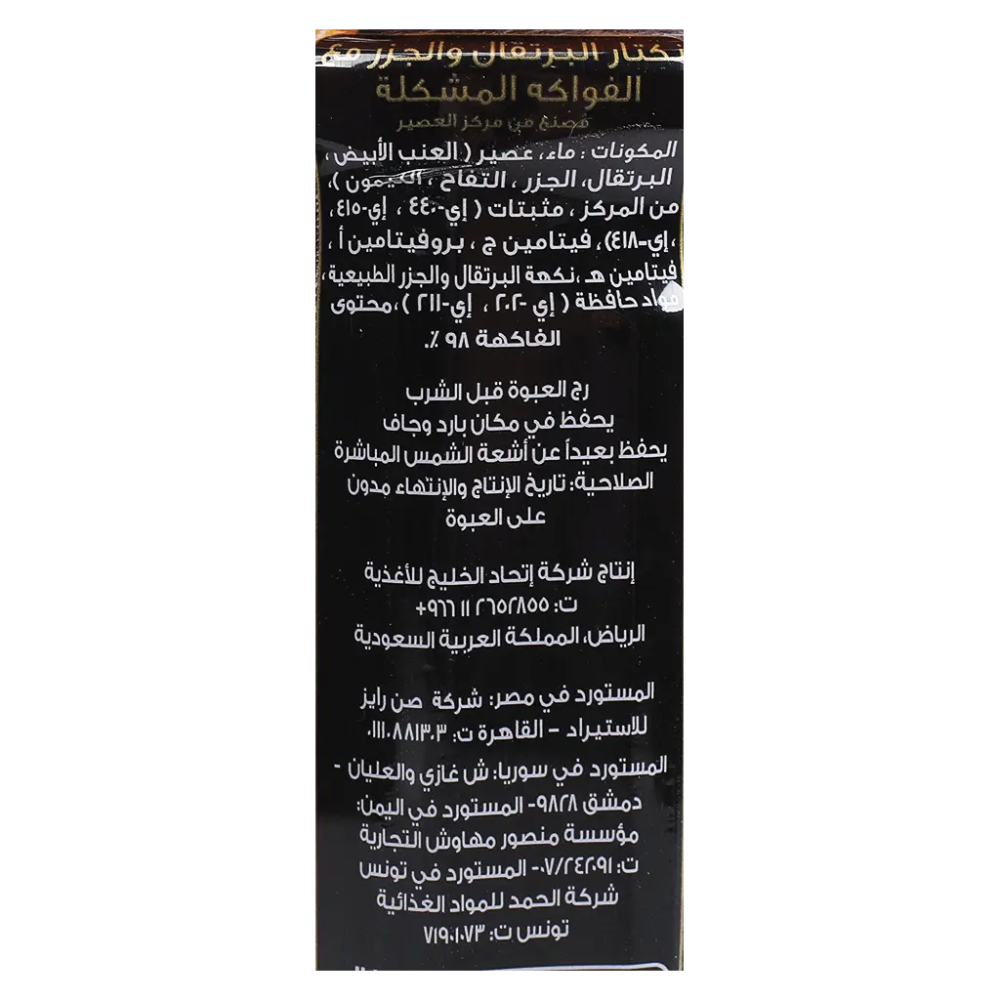 نكتار البرتقال والجزر مع
الفواكه المشكلة
مصنع من مركز العصير
المكونات : ماء، عصير ( العنب الأبيض ،
البرتقال، الجزر ، التفاح ، الليمون )،
من المركز ، مثبتات ( إي-٤٤٠ ، إي-٤١٥ ،
،إي-٤١٨)، فيتامين ج ، بروفيتامين أ ،
فيتامين هـ، نكهة البرتقال والجزر الطبيعية،
مواد حافظة ( إي -٢٠٢ ، إي-٢١١ )،محتوى
الفاكهة ٩٨ ٪.
رج العبوة قبل الشرب
يحفظ في مكان بارد وجاف
يحفظ بعيداً عن أشعة الشمس المباشرة
الصلاحية: تاريخ الإنتاج والإنتهاء مدون
على العبوة
إنتاج شركة إتحاد الخليج للأغذية
ت: ٢٦٥٢٨٥٥ ١١ ٩٦٦+
الرياض، المملكة العربية السعودية
المستورد في مصر: شركة صن رايز
للاستيراد – القاهرة ت: ٠١١١٠٨٨١٣٠٣
المستورد في سوريا: ش غازي والعليان -
دمشق ٩٨٢٨- المستورد في اليمن:
مؤسسة منصور مهاوش التجارية
ت: ٠٧/٢٤٢٠٩١- المستورد في تونس
شركة الحمد للمواد الغذائية
تونس ت: ٧١٩٠١٠٧٣